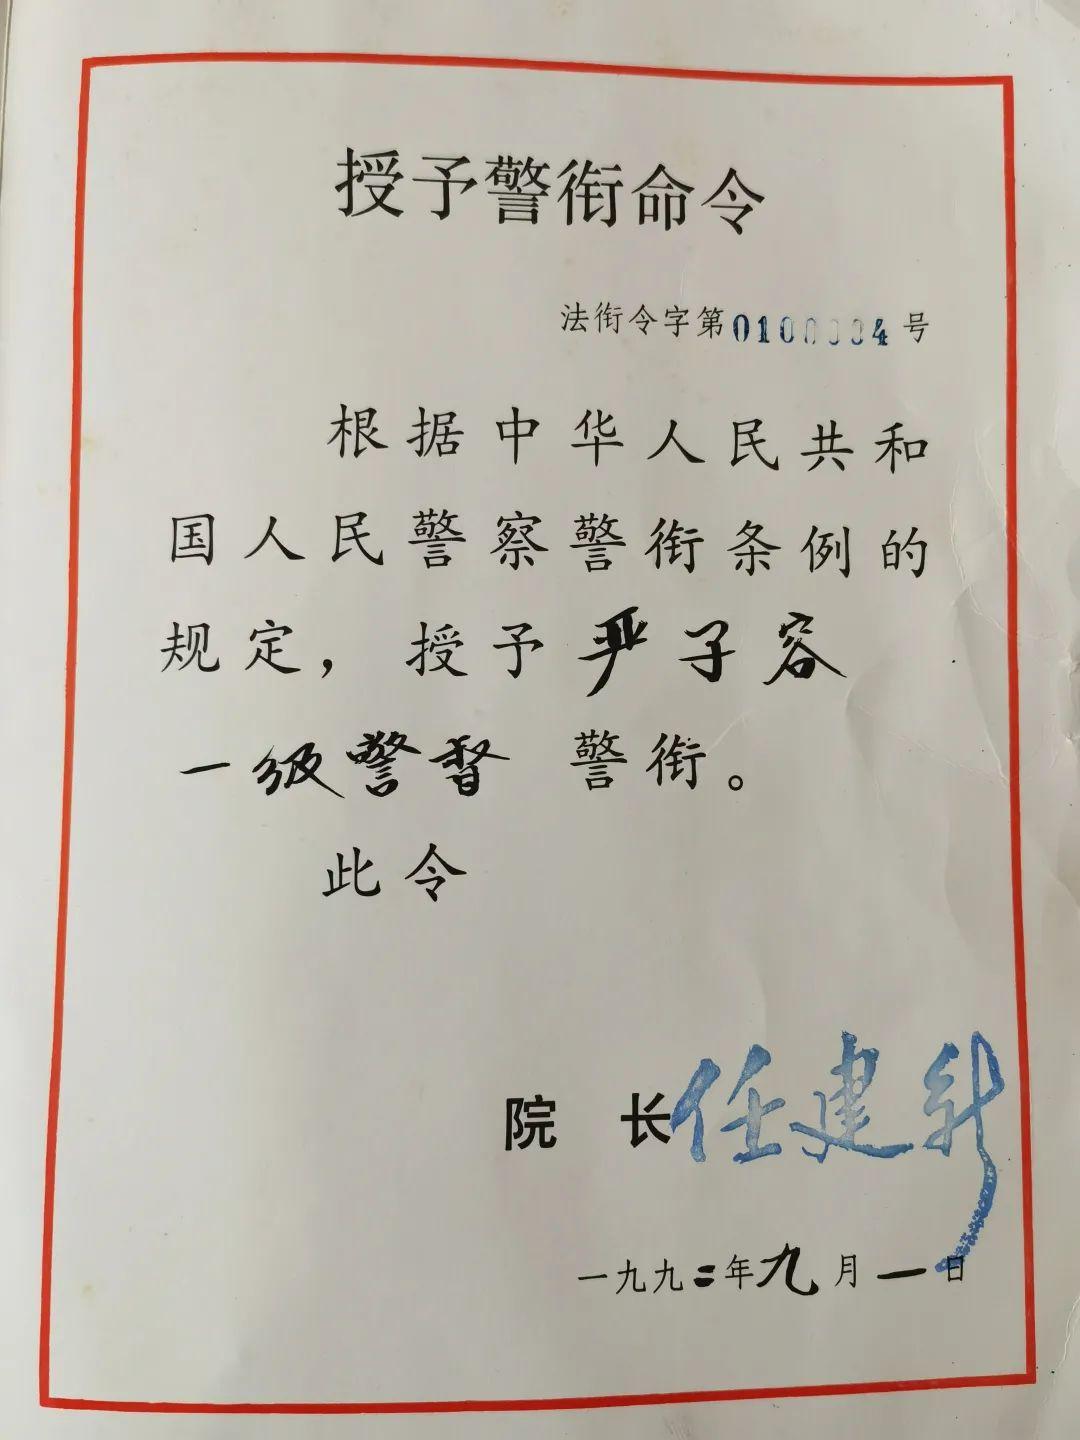 授予警衔命令
法衔令字第0100004号
根据中华人民共和
国人民警察警衔条例的
规定，授予严子容
一级警督 警衔。
此令
院 长 任建新
一九九二年九月一日